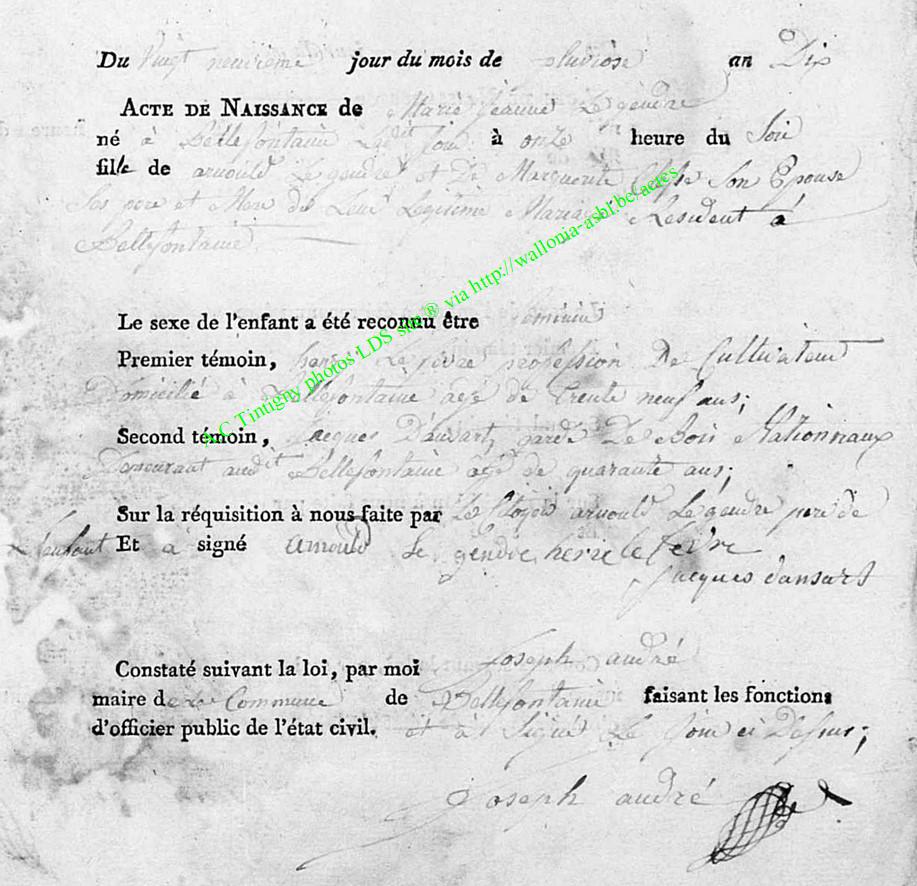 Du Vingt neuvieme jour du mois de pluviose an Dix
ACTE DE NAISSANCE de Marie Jeanne Legendre
né à Bellefontaine Ledit Jour à onze heure du Soir
fille de arnould Legendre et De Marguerite Son Epouse
Ses pere et Mere de Leur Legitime Mariage Resident à
Bellefontaine.
Le sexe de l'enfant a été reconnu être féminin
Premier témoin, Le fevre profession De Cultivateur
Domicilié à Bellefontaine agé de trente neuf ans;
Second témoin, Jacques Dansart garde De Bois Nationnaux
Demeurant audit Bellefontaine agé de quarante ans;
Sur la réquisition à nous faite par Le Citoyen arnould Legendre pere de
l'enfant Et à signé arnould le gendre henri le fevre
jacques dansart
Constaté suivant la loi, par moi Joseph andré
maire de la Commune de Bellefontaine faisant les fonctions
d'officier public de l'état civil. et à Signé Le Jour ci Dessus;
Joseph andré
A.C Tintigny photos LDS site ® via http://wallonia-asbl.be/actes